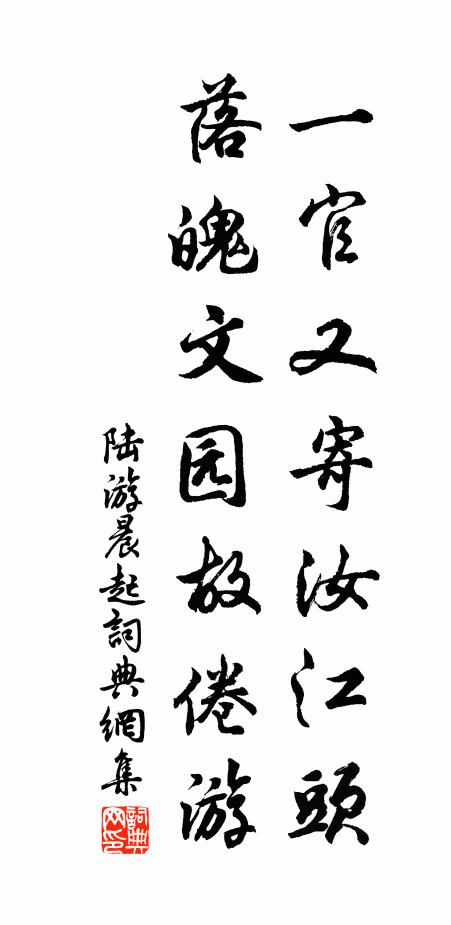 一官又寄汝江頭
落魄文园故倦游
陆游晨起詞典網集
詞典网印